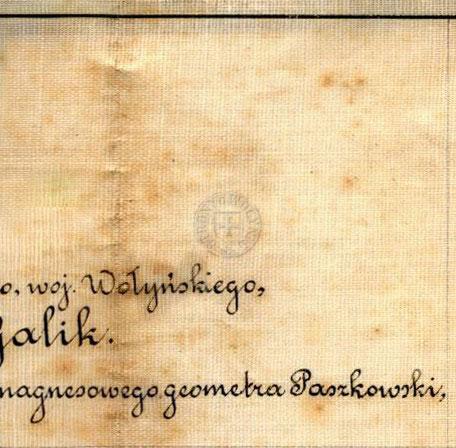 o, woj. Wołyńskiego,
Galik.
magnesowego geometra Paszkowski,